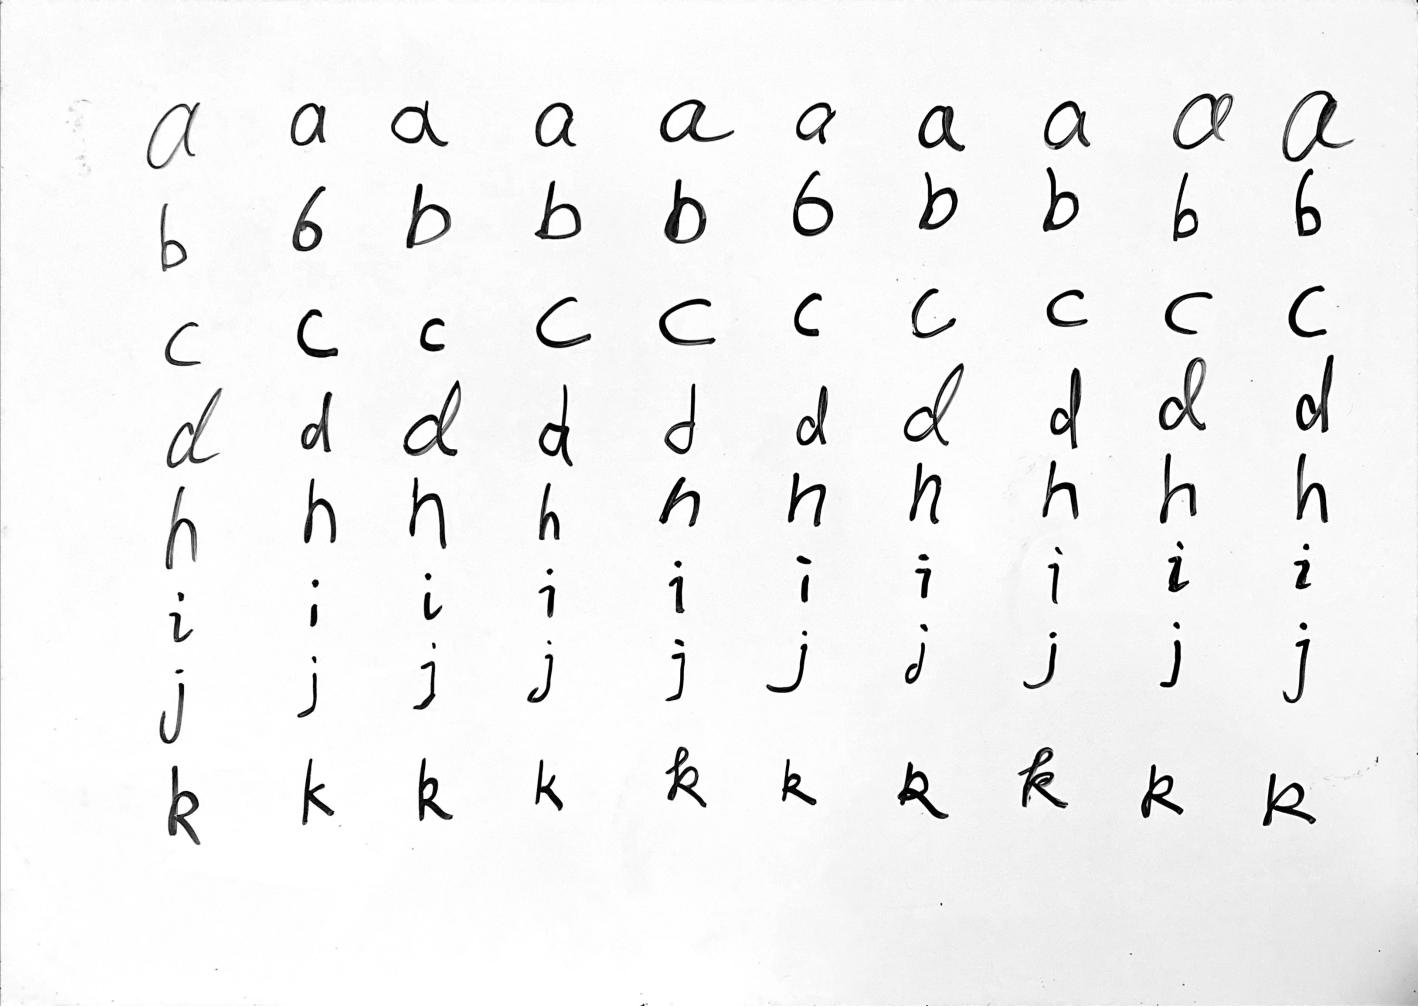 a a a a a a a a a a
b b b b b b b b b b
c c c c c c c c c c
d d d d d d d d d d
h h h h h h h h h h
i i i i i i i i i i
j j j j j j j j j j
k k k k k k k k k k